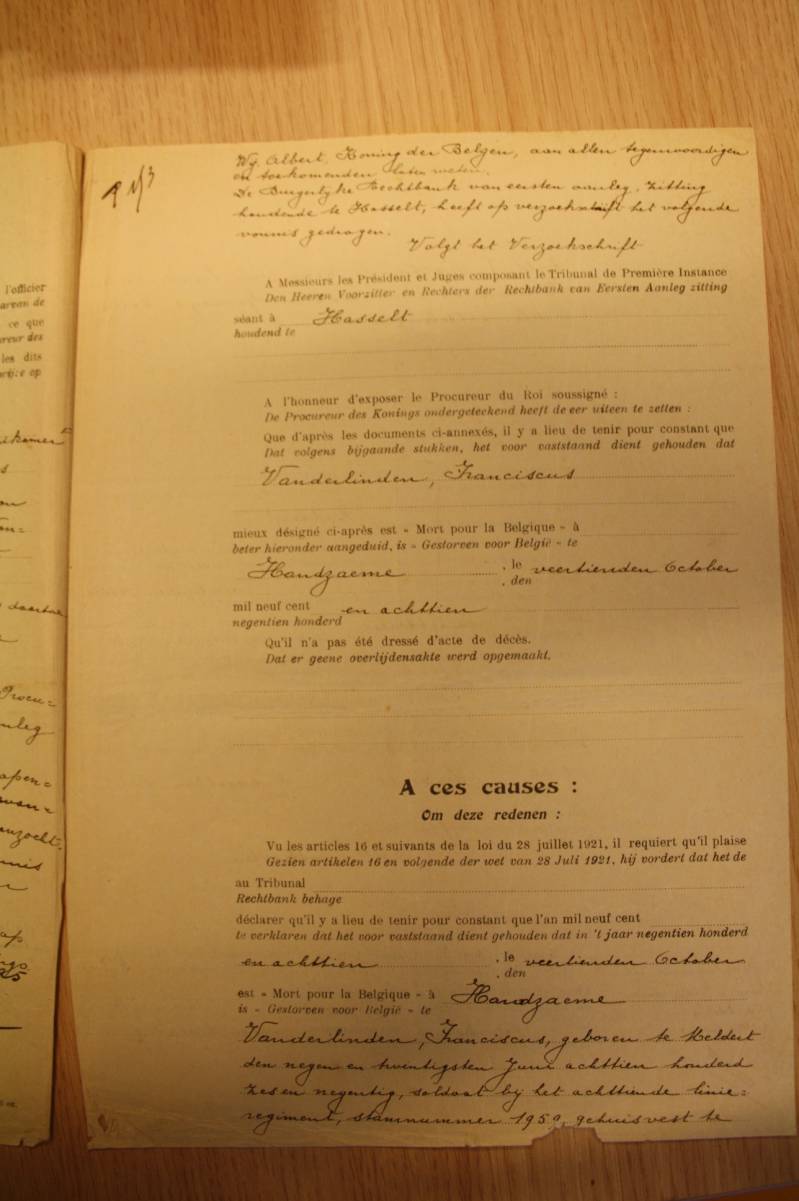 Wij Albert, Koning der Belgen, aan allen tegenwoordigen
en toekomenden laten weten.
De Burgerlijke Rechtbank van eersten aanleg, zitting
houdende te Hasselt, heeft op verzoekschrift het volgende
vonnis gedragen.
Volgt het Verzoekschrift
A Messieurs les Président et Juges composant le Tribunal de Première Instance
Den Heeren Voorzitter en Rechters der Rechtbank van Eersten Aanleg zitting
séant à Hasselt
houdend te
A l'honneur d'exposer le Procureur du Roi soussigné :
De Procureur des Konings ondergeteekend heeft de eer uiteen te zetten :
Que d'après les documents ci-annexés, il y a lieu de tenir pour constant que
Dat volgens bijgaande stukken, het voor vaststaand dient gehouden dat
Vanderlinden, Franciscus
mieux désigné ci-après est « Mort pour la Belgique » à
beter hieronder aangeduid, is « Gestorven voor België » te
Handzaeme, le veertienden October
, den
mil neuf cent en achttien
negentien honderd
Qu'il n'a pas été dressé d'acte de décès.
Dat er geene overlijdensakte werd opgemaakt.
A ces causes :
Om deze redenen :
Vu les articles 16 et suivants de la loi du 28 juillet 1921, il requiert qu'il plaise
Gezien artikelen 16 en volgende der wet van 28 Juli 1921, hij vordert dat het de
au Tribunal
Rechtbank behage
déclarer qu'il y a lieu de tenir pour constant que l'an mil neuf cent
te verklaren dat het voor vaststaand dient gehouden dat in 't jaar negentien honderd
en achttien, le veertienden October
, den
est « Mort pour la Belgique » à Handzaeme
is « Gestorven voor België » te
Vanderlinden, Franciscus, geboren te Heldert
den negen en twintigsten Juni achttien honderd
zes en negentig, soldaat bij het achttiende linie=
regiment, stamnummer 1959, gehuisvest te
l'officier
ce que
les dits
daartoe
Procu=